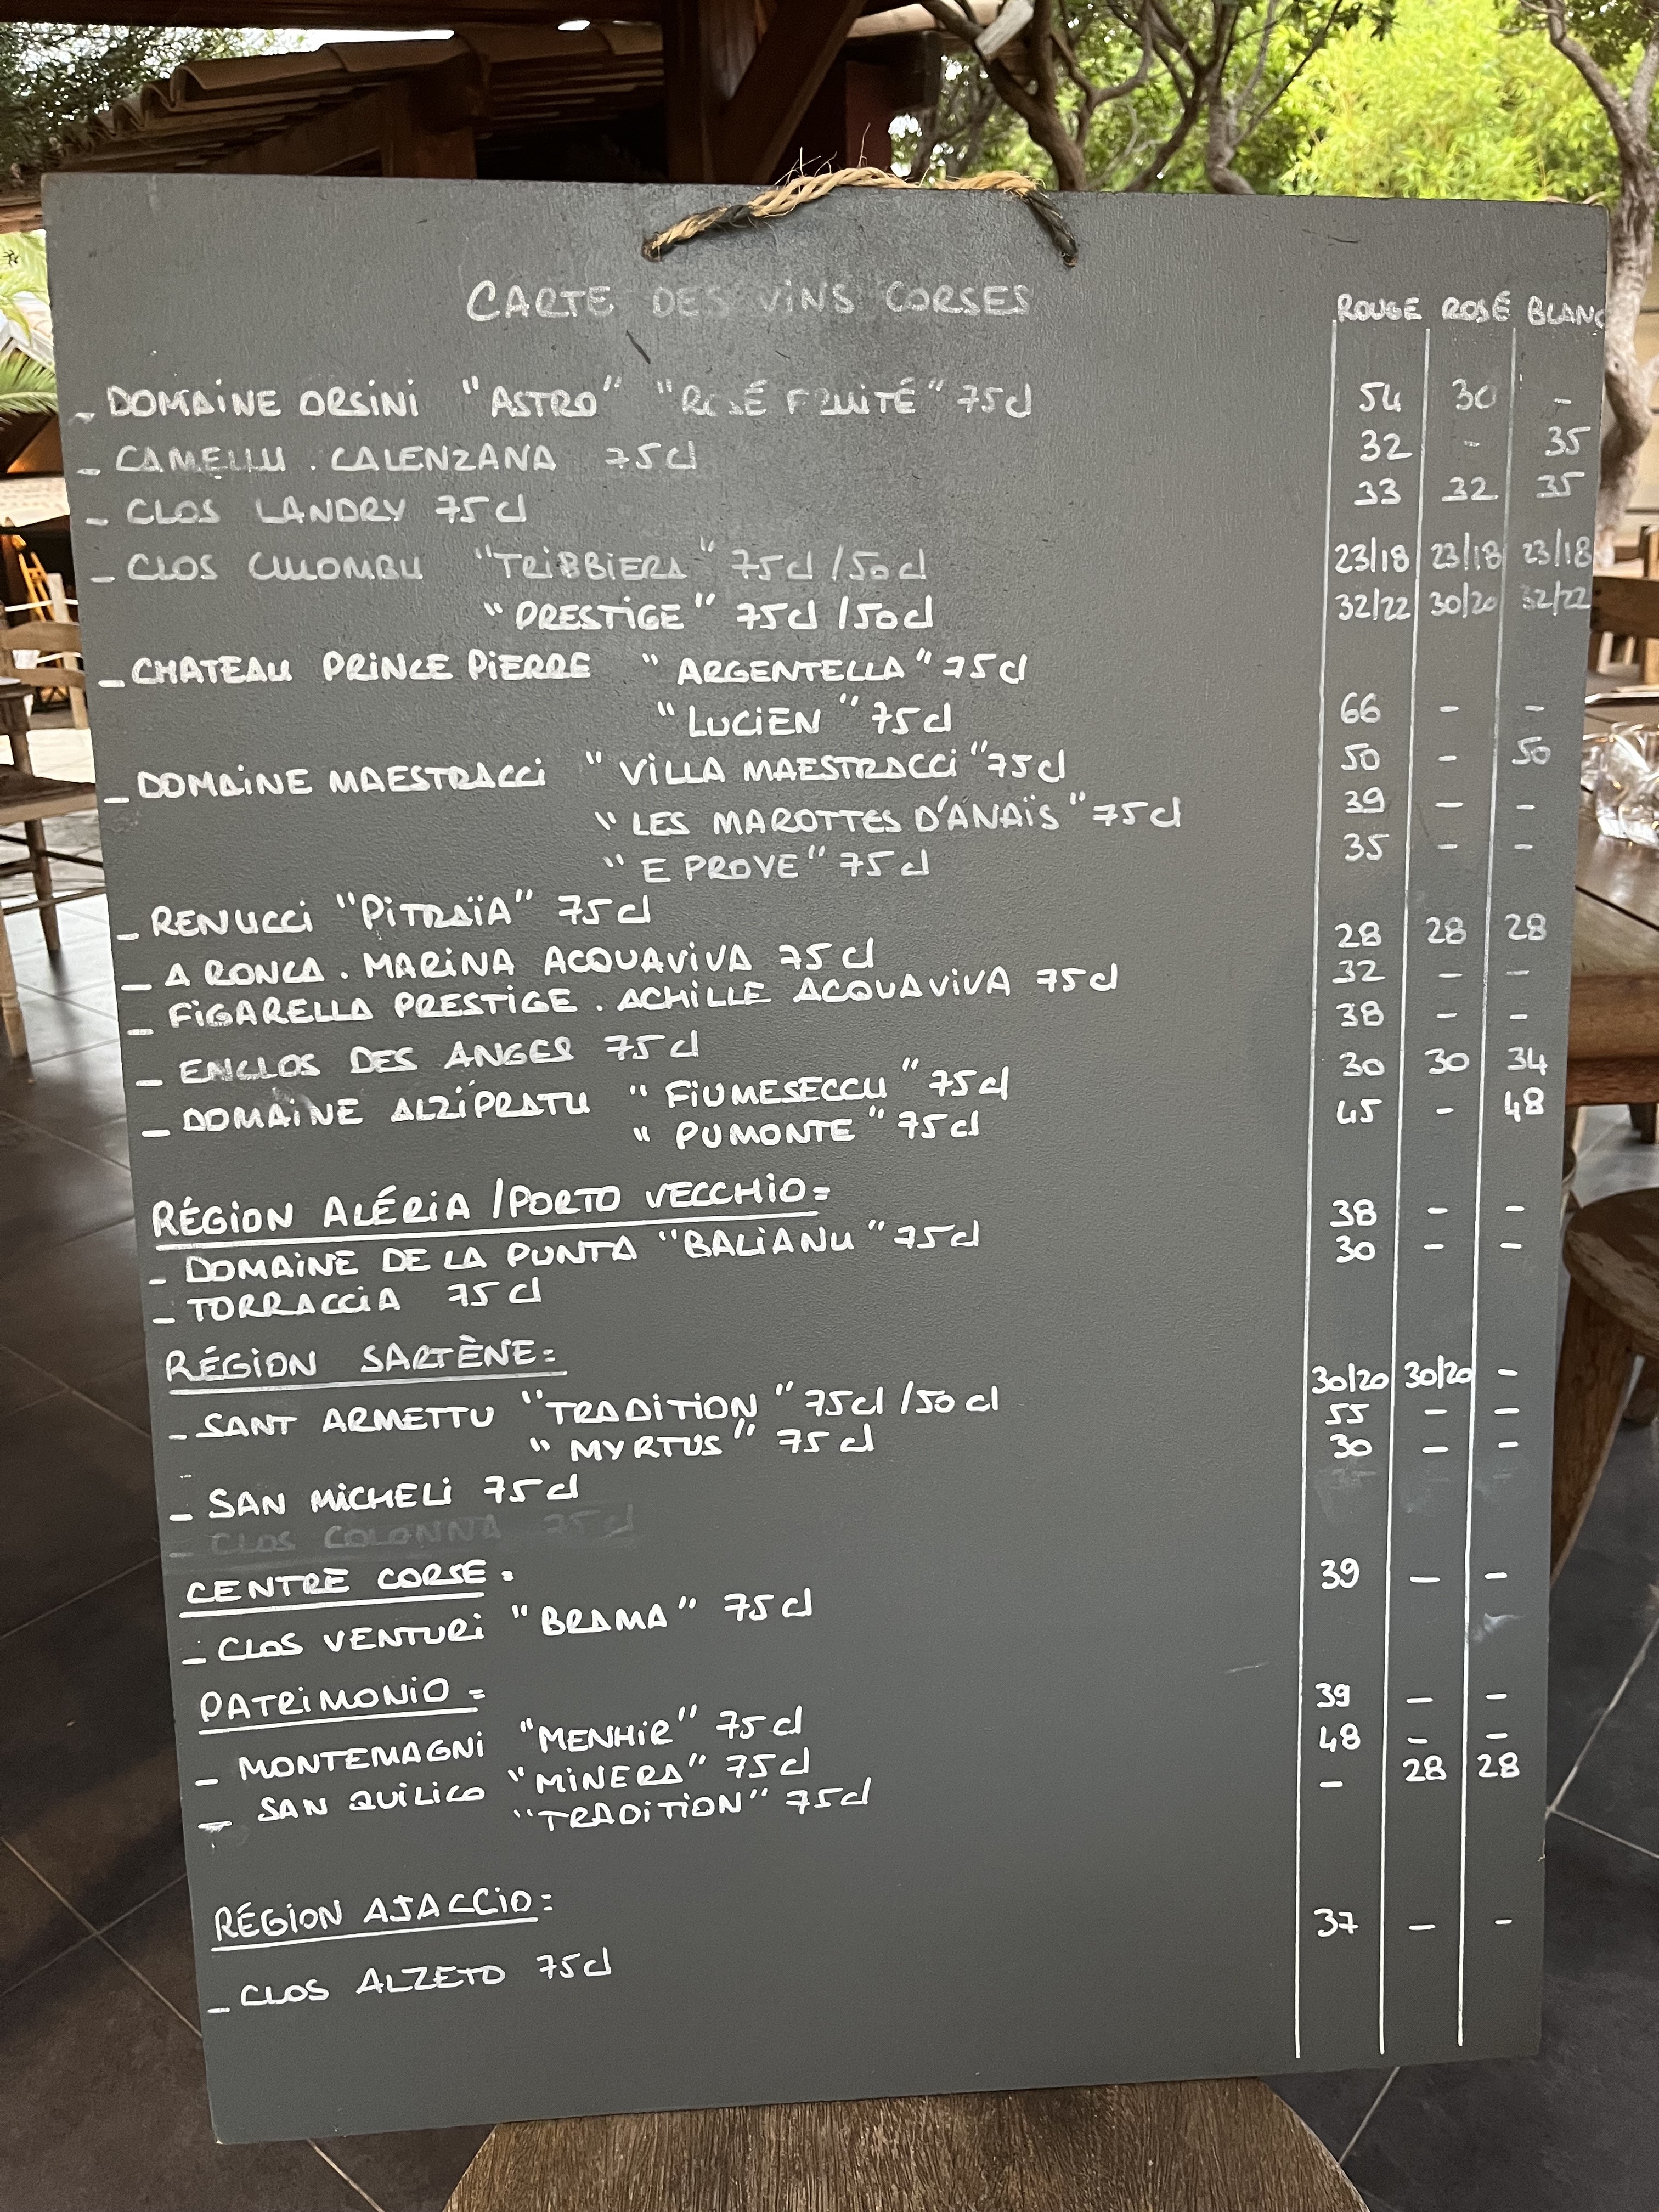 CARTE DES VINS CORSES
- DOMAINE ORSINI "ASTRO" "ROSÉ FRUITÉ" 75cl
- CAMELLU . CALENZANA 75cl
- CLOS LANDRY 75cl
- CLOS CULOMBU "TRIBBIERA" 75cl /50cl
"PRESTIGE" 75cl /50cl
- CHATEAU PRINCE PIERRE "ARGENTELLA" 75cl
"LUCIEN" 75cl
- DOMAINE MAESTRACCI "VILLA MAESTRACCI" 75cl
"LES MAROTTES D'ANAÏS" 75cl
"E PROVE" 75cl
- RENUCCI "PITRAÏA" 75cl
- A RONCA . MARINA ACQUAVIVA 75cl
- FIGARELLA PRESTIGE . ACHILLE ACQUAVIVA 75cl
- ENCLOS DES ANGES 75cl
- DOMAINE ALZIPRATU "FIUMESECCU" 75cl
"PUMONTE" 75cl
RÉGION ALÉRIA /PORTO VECCHIO =
- DOMAINE DE LA PUNTA "BALIANU" 75cl
- TORRACCIA 75cl
RÉGION SARTÈNE =
- SANT ARMETTU "TRADITION" 75cl /50cl
"MYRTUS" 75cl
- SAN MICHELI 75cl
- CLOS COLONNA 75cl
CENTRE CORSE =
- CLOS VENTURI "BRAMA" 75cl
PATRIMONIO =
- MONTEMAGNI "MENHIR" 75cl
- SAN QUILICO "MINERA" 75cl
"TRADITION" 75cl
RÉGION AJACCIO =
- CLOS ALZETO 75cl
ROUGE ROSÉ BLANC
54 30 -
32 - 35
33 32 35
23/18 23/18 23/18
32/22 30/20 32/22
66 - -
50 - 50
39 - -
35 - -
28 28 28
32 - -
38 - -
30 30 34
45 - 48
38 - -
30 - -
30/20 30/20 -
55 - -
30 - -
39 - -
39 - -
48 - -
- 28 28
37 - -